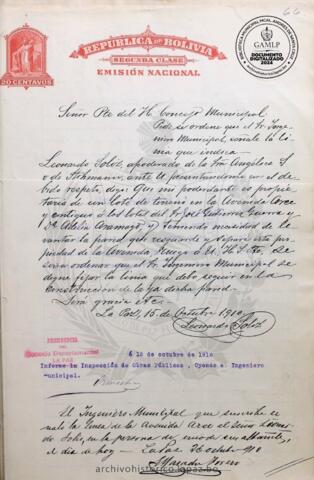 66
REPÚBLICA DE BOLIVIA
SEGUNDA CLASE
EMISIÓN NACIONAL
20 CENTAVOS
GAMLP
DOCUMENTO
DIGITALIZADO
2024
Señor Pte del H. Concejo Municipal
Pide se ordene que el Sr. Inge-
niero Municipal, señale la lí-
nea que indica.
Leonardo Soloz, apoderado de la Sra Angélica
v. de, ante U. con el de-
bido respeto, digo: Que mi poderdante es propie-
taria de un lote de terreno en la Avenida Arce
y contiguo a los lotes del Sr. José Gutierrez Guerra y
Da Adela Aramayo, y teniendo necesidad de le-
vantar la pared que resguarde y separe esta pro-
piedad de la Avenida, ruego á Ud.
se ordenar que el Sr. Ingeniero Municipal se
digne fijar la línea que debo seguir en la
construcción de la ya dicha pared.
Será gracia etc.
La Paz, 15 de Octubre 1910
Leonardo Soloz
PRESIDENCIA
DEL
Concejo Departamental
LA PAZ
á 18 de octubre de 1910
Informe la Inspección de Obras Públicas, oyendo al Ingeniero
Municipal.
El Ingeniero Municipal que suscribe se-
ñaló la línea de la Avenida Arce al Señor Leonar-
do Soloz, en la persona de
el dia de hoy — La Paz 26 octubre 910
archivohistorico.lapaz.bo